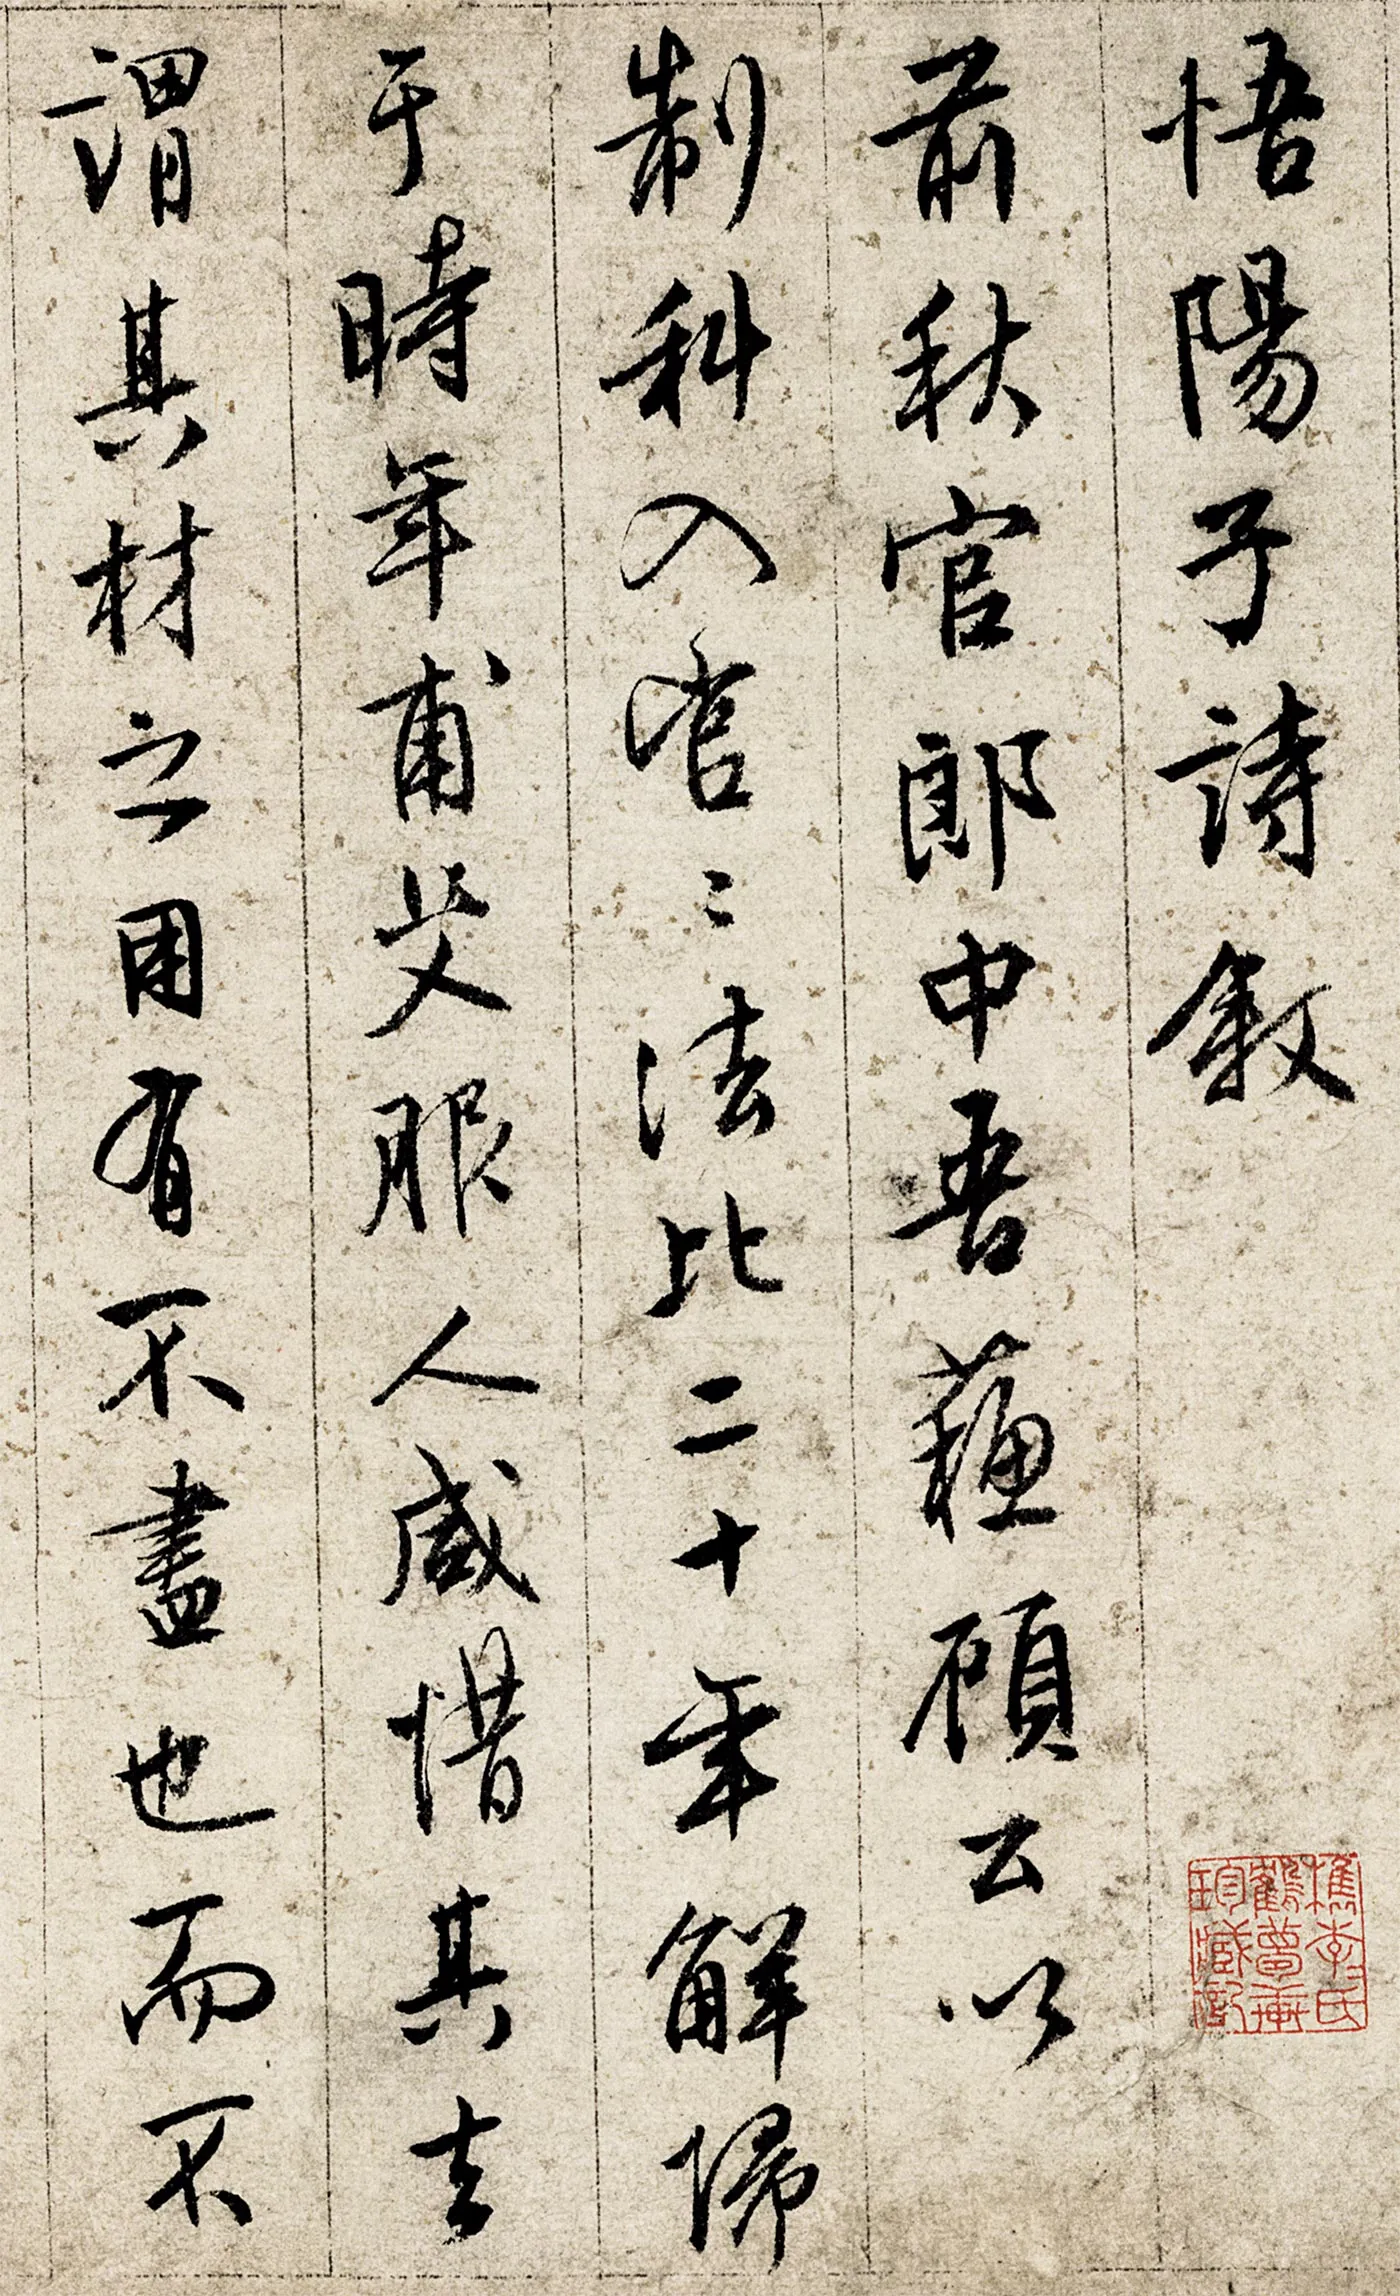 悟陽子詩敘
前秋官郎中吾蘇顧公以
制科入官〻法比二十年解歸
于時年甫艾服人咸惜其去
謂其材之用有不盡也而不
檇李氏
鶴夢軒
珍藏記